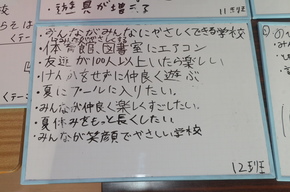 遊具が増える
11班
・みんながみんなにやさしくできる学校
・体育館、図書室にエアコン
・友達が100人以上いたら楽しい
・けんかをせずに仲良く遊ぶ
・夏にプールに入りたい。
・みんなが仲良く楽しくすごしたい。
・夏休みをもっと長くしたい
・みんなが笑顔でやさしい学校
12班